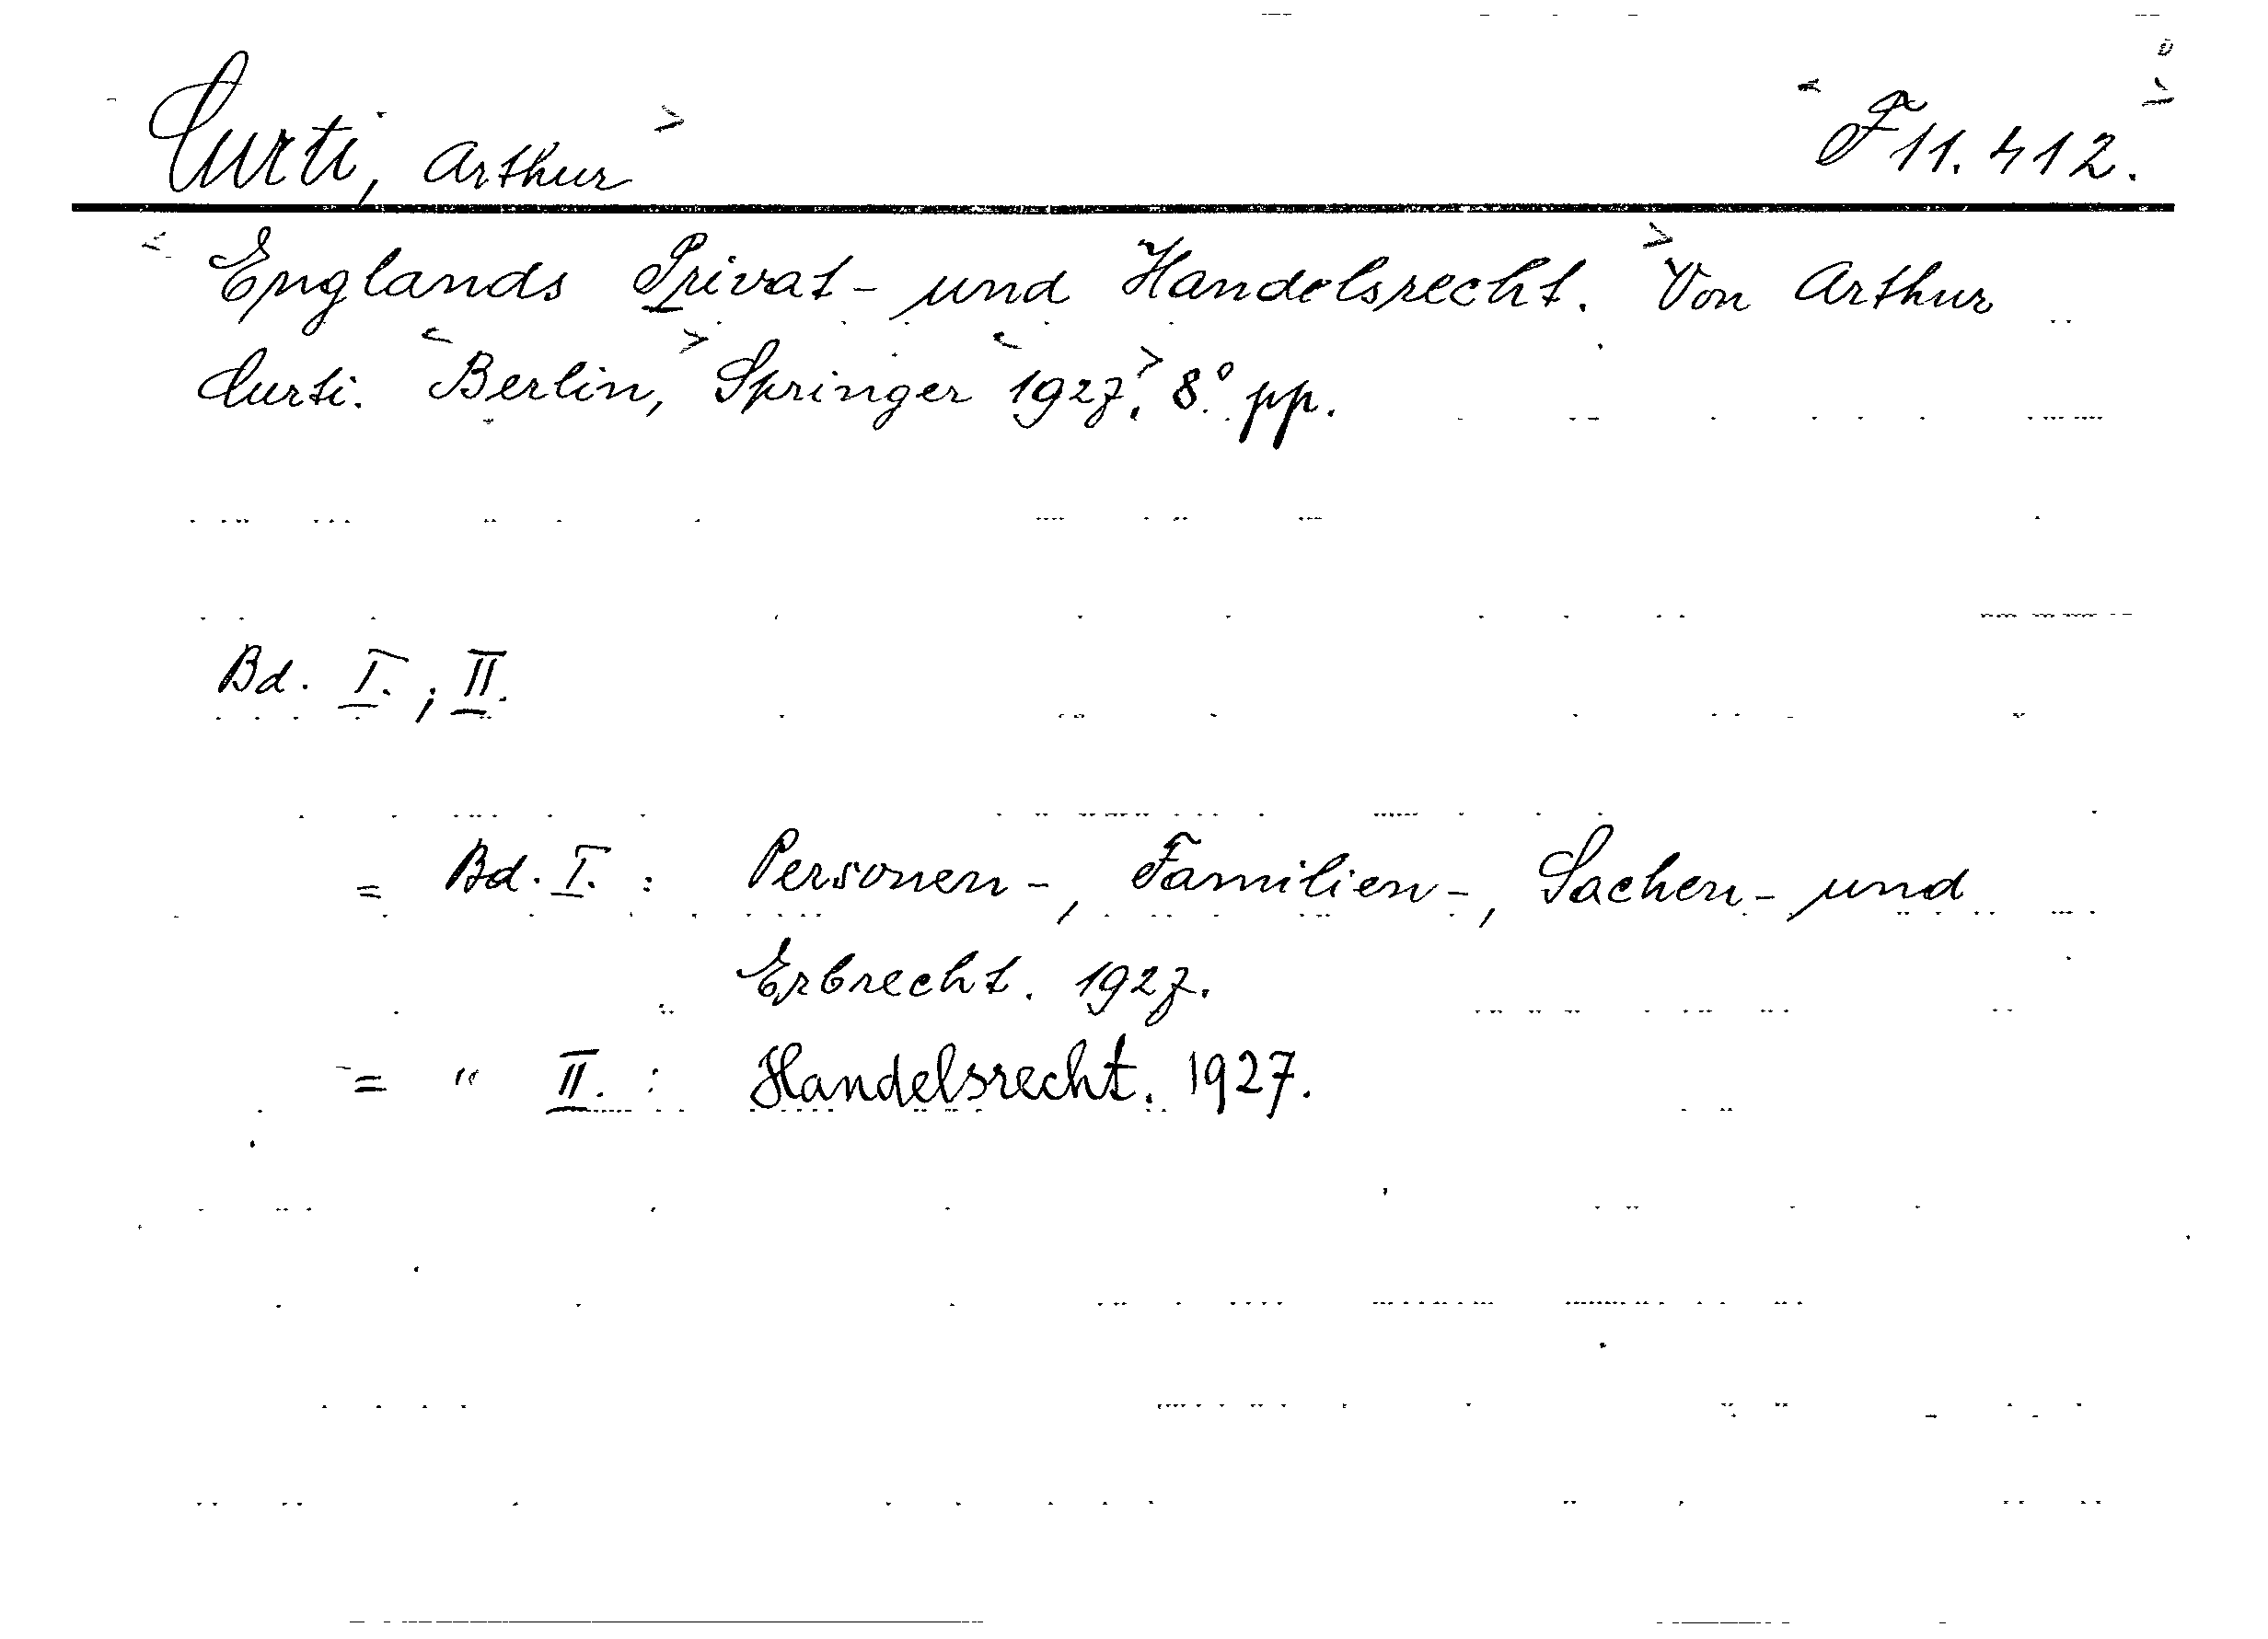 Curti, Arthur F 11.412.
Englands Privat- und Handelsrecht. Von Arthur
Curti. Berlin, Springer 1927. 8° pp.
Bd. I.; II.
= Bd. I. : Personen-, Familien-, Sachen- und
Erbrecht. 1927.
= " II. : Handelsrecht. 1927.